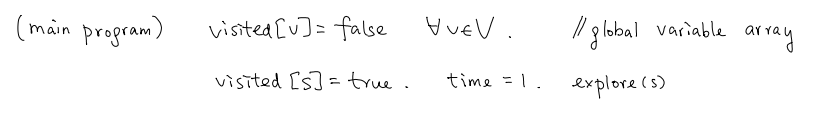 (main program) visited[v]= false ∀ v∈V . //global variable array
visited [s]= true . time = 1 . explore(s)